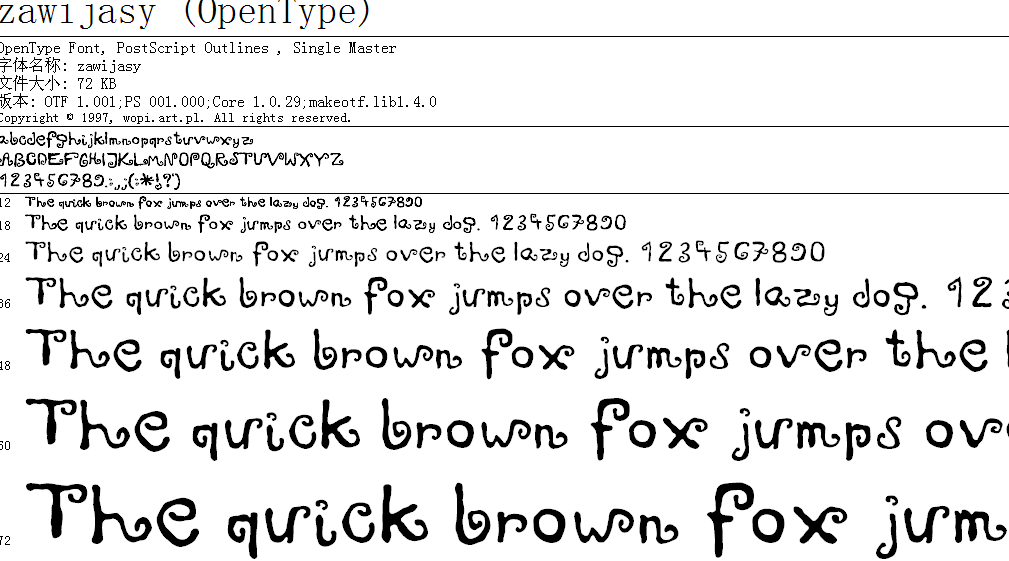 zawijasy (OpenType)
OpenType Font, PostScript Outlines , Single Master
字体名称: zawijasy
文件大小: 72 KB
版本: OTF 1.001;PS 001.000;Core 1.0.29;makeotf.lib1.4.0
Copyright © 1997, wopi.art.pl. All rights reserved.
abcdefghijklmnopqrstuvwxyz
ABCDEFGHIJKLMNOPQRSTUVWXYZ
1234567890.:,;(:*!?')
12 The quick brown fox jumps over the lazy dog. 1234567890
18 The quick brown fox jumps over the lazy dog. 1234567890
24 The quick brown fox jumps over the lazy dog. 1234567890
36 The quick brown fox jumps over the lazy dog. 123
48 The quick brown fox jumps over the l
60 The quick brown fox jumps ov
72 The quick brown fox jum